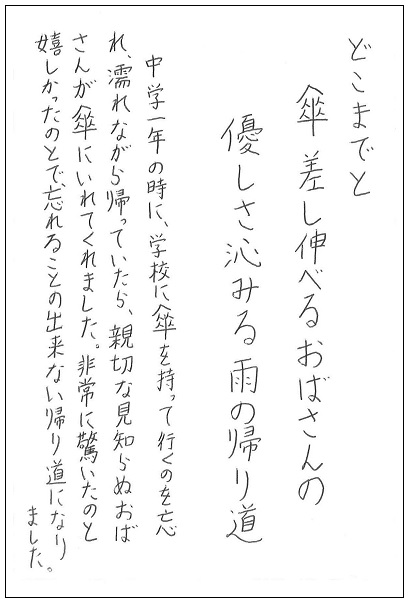 どこまでと
傘差し伸べるおばさんの
優しさ沁みる雨の帰り道
中学一年の時に、学校に傘を持って行くのを忘
れ、濡れながら帰っていたら、親切な見知らぬおば
さんが傘にいれてくれました。非常に驚いたのと
嬉しかったのとで、忘れることの出来ない帰り道になり
ました。